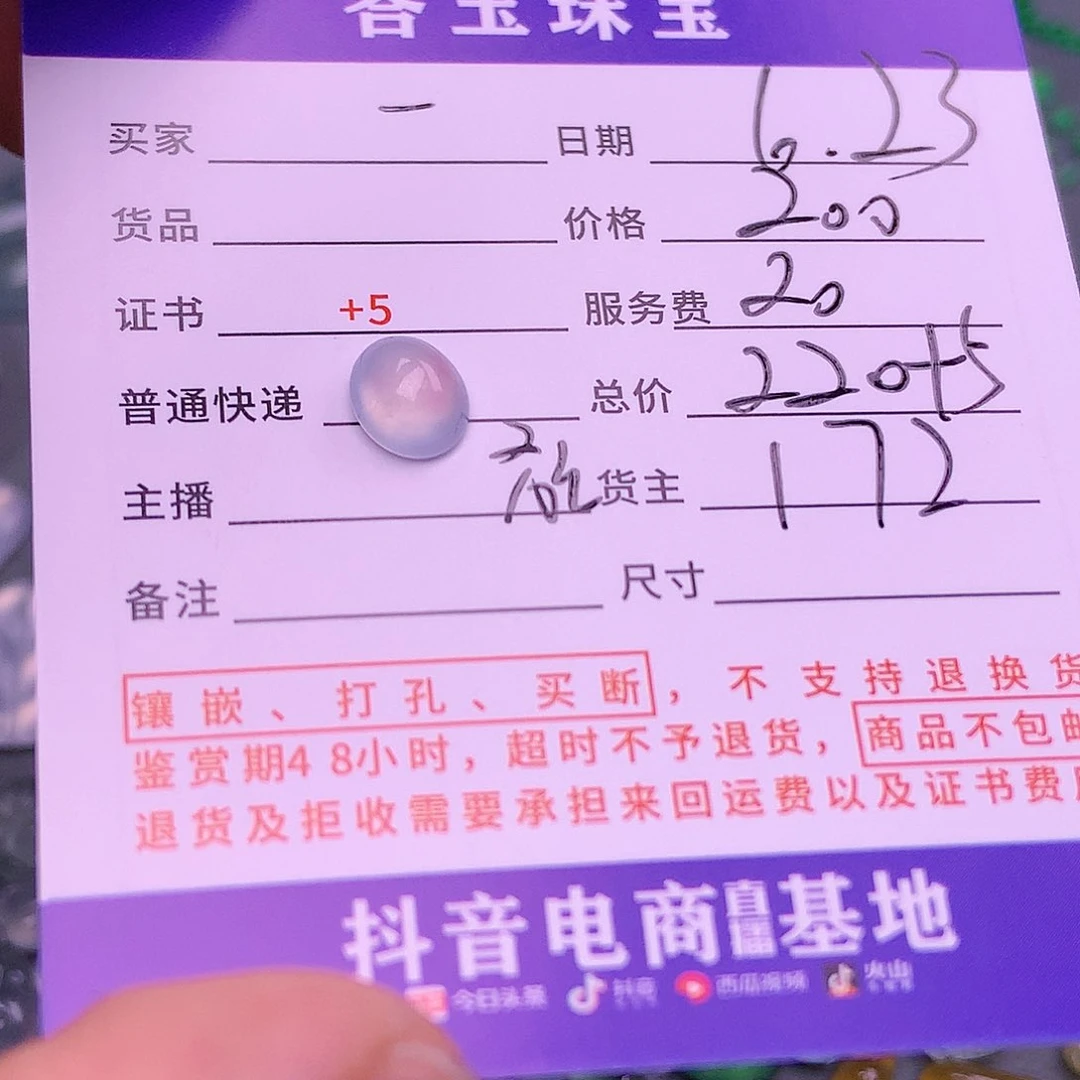 玉珠宝
买家 一 日期 6.23
货品 价格 200
证书 +5 服务费 20
普通快递 总价 220+5
主播 货主 172
备注 尺寸
镶嵌、打孔、买断，不支持退换货
鉴赏期48小时，超时不予退货，商品不包邮
退货及拒收需要承担来回运费以及证书费
抖音电商直播基地
今日头条 抖音 西瓜视频 火山